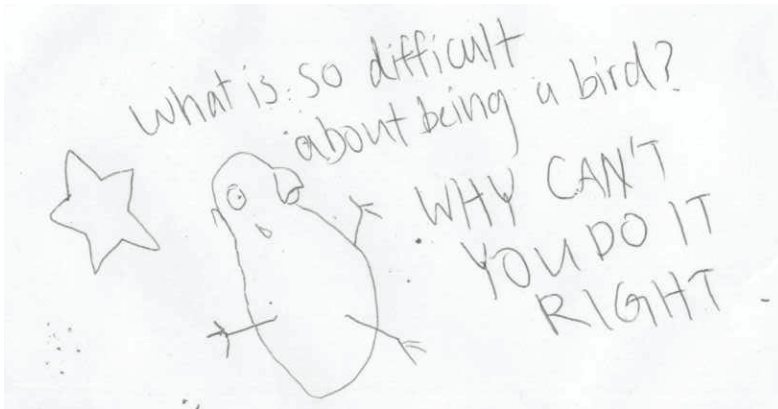 what is so difficult
about being a bird?
WHY CAN'T
YOU DO IT
RIGHT